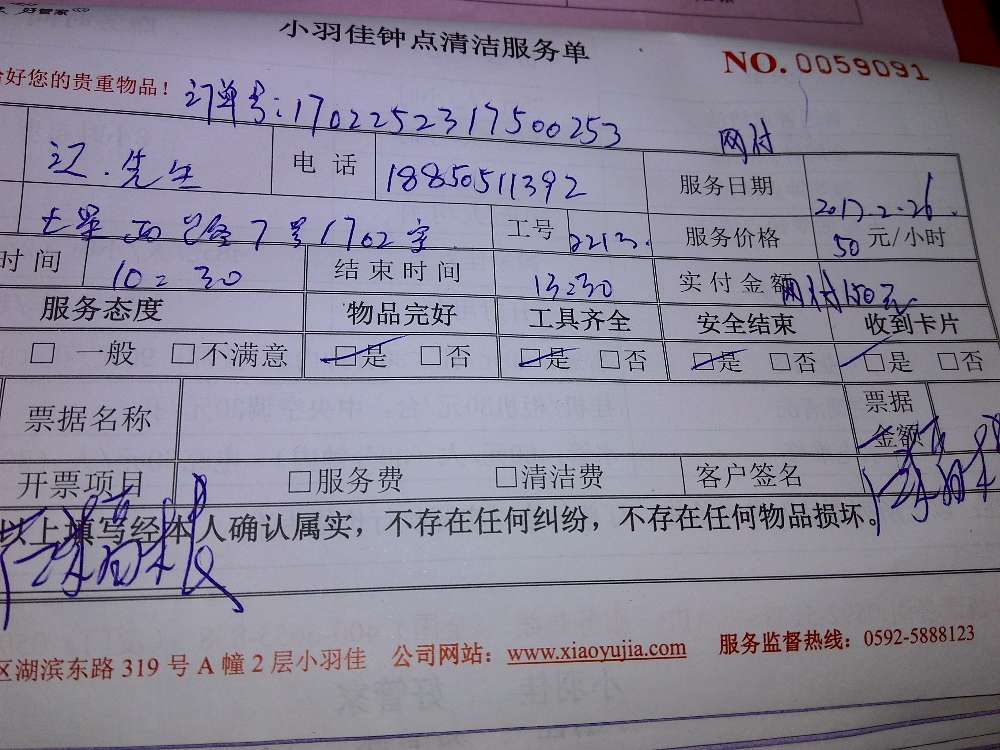 好管家
小羽佳钟点清洁服务单
NO. 0059091
好您的贵重物品！
订单号：1702252317500253
网付
江.先生 电话 18850511392 服务日期 2017.2.26.
七星西路7号1702室 工号 2213. 服务价格 50元/小时
时间 10:30 结束时间 13:30 实付金额 网付150元
服务态度 物品完好 工具齐全 安全结束 收到卡片
□ 一般 □不满意 □是 □否 □是 □否 □是 □否 □是 □否
票据名称 票据金额
开票项目 □服务费 □清洁费 客户签名
以上填写经本人确认属实，不存在任何纠纷，不存在任何物品损坏。
区湖滨东路 319 号 A 幢 2 层小羽佳 公司网站：www.xiaoyujia.com 服务监督热线：0592-5888123